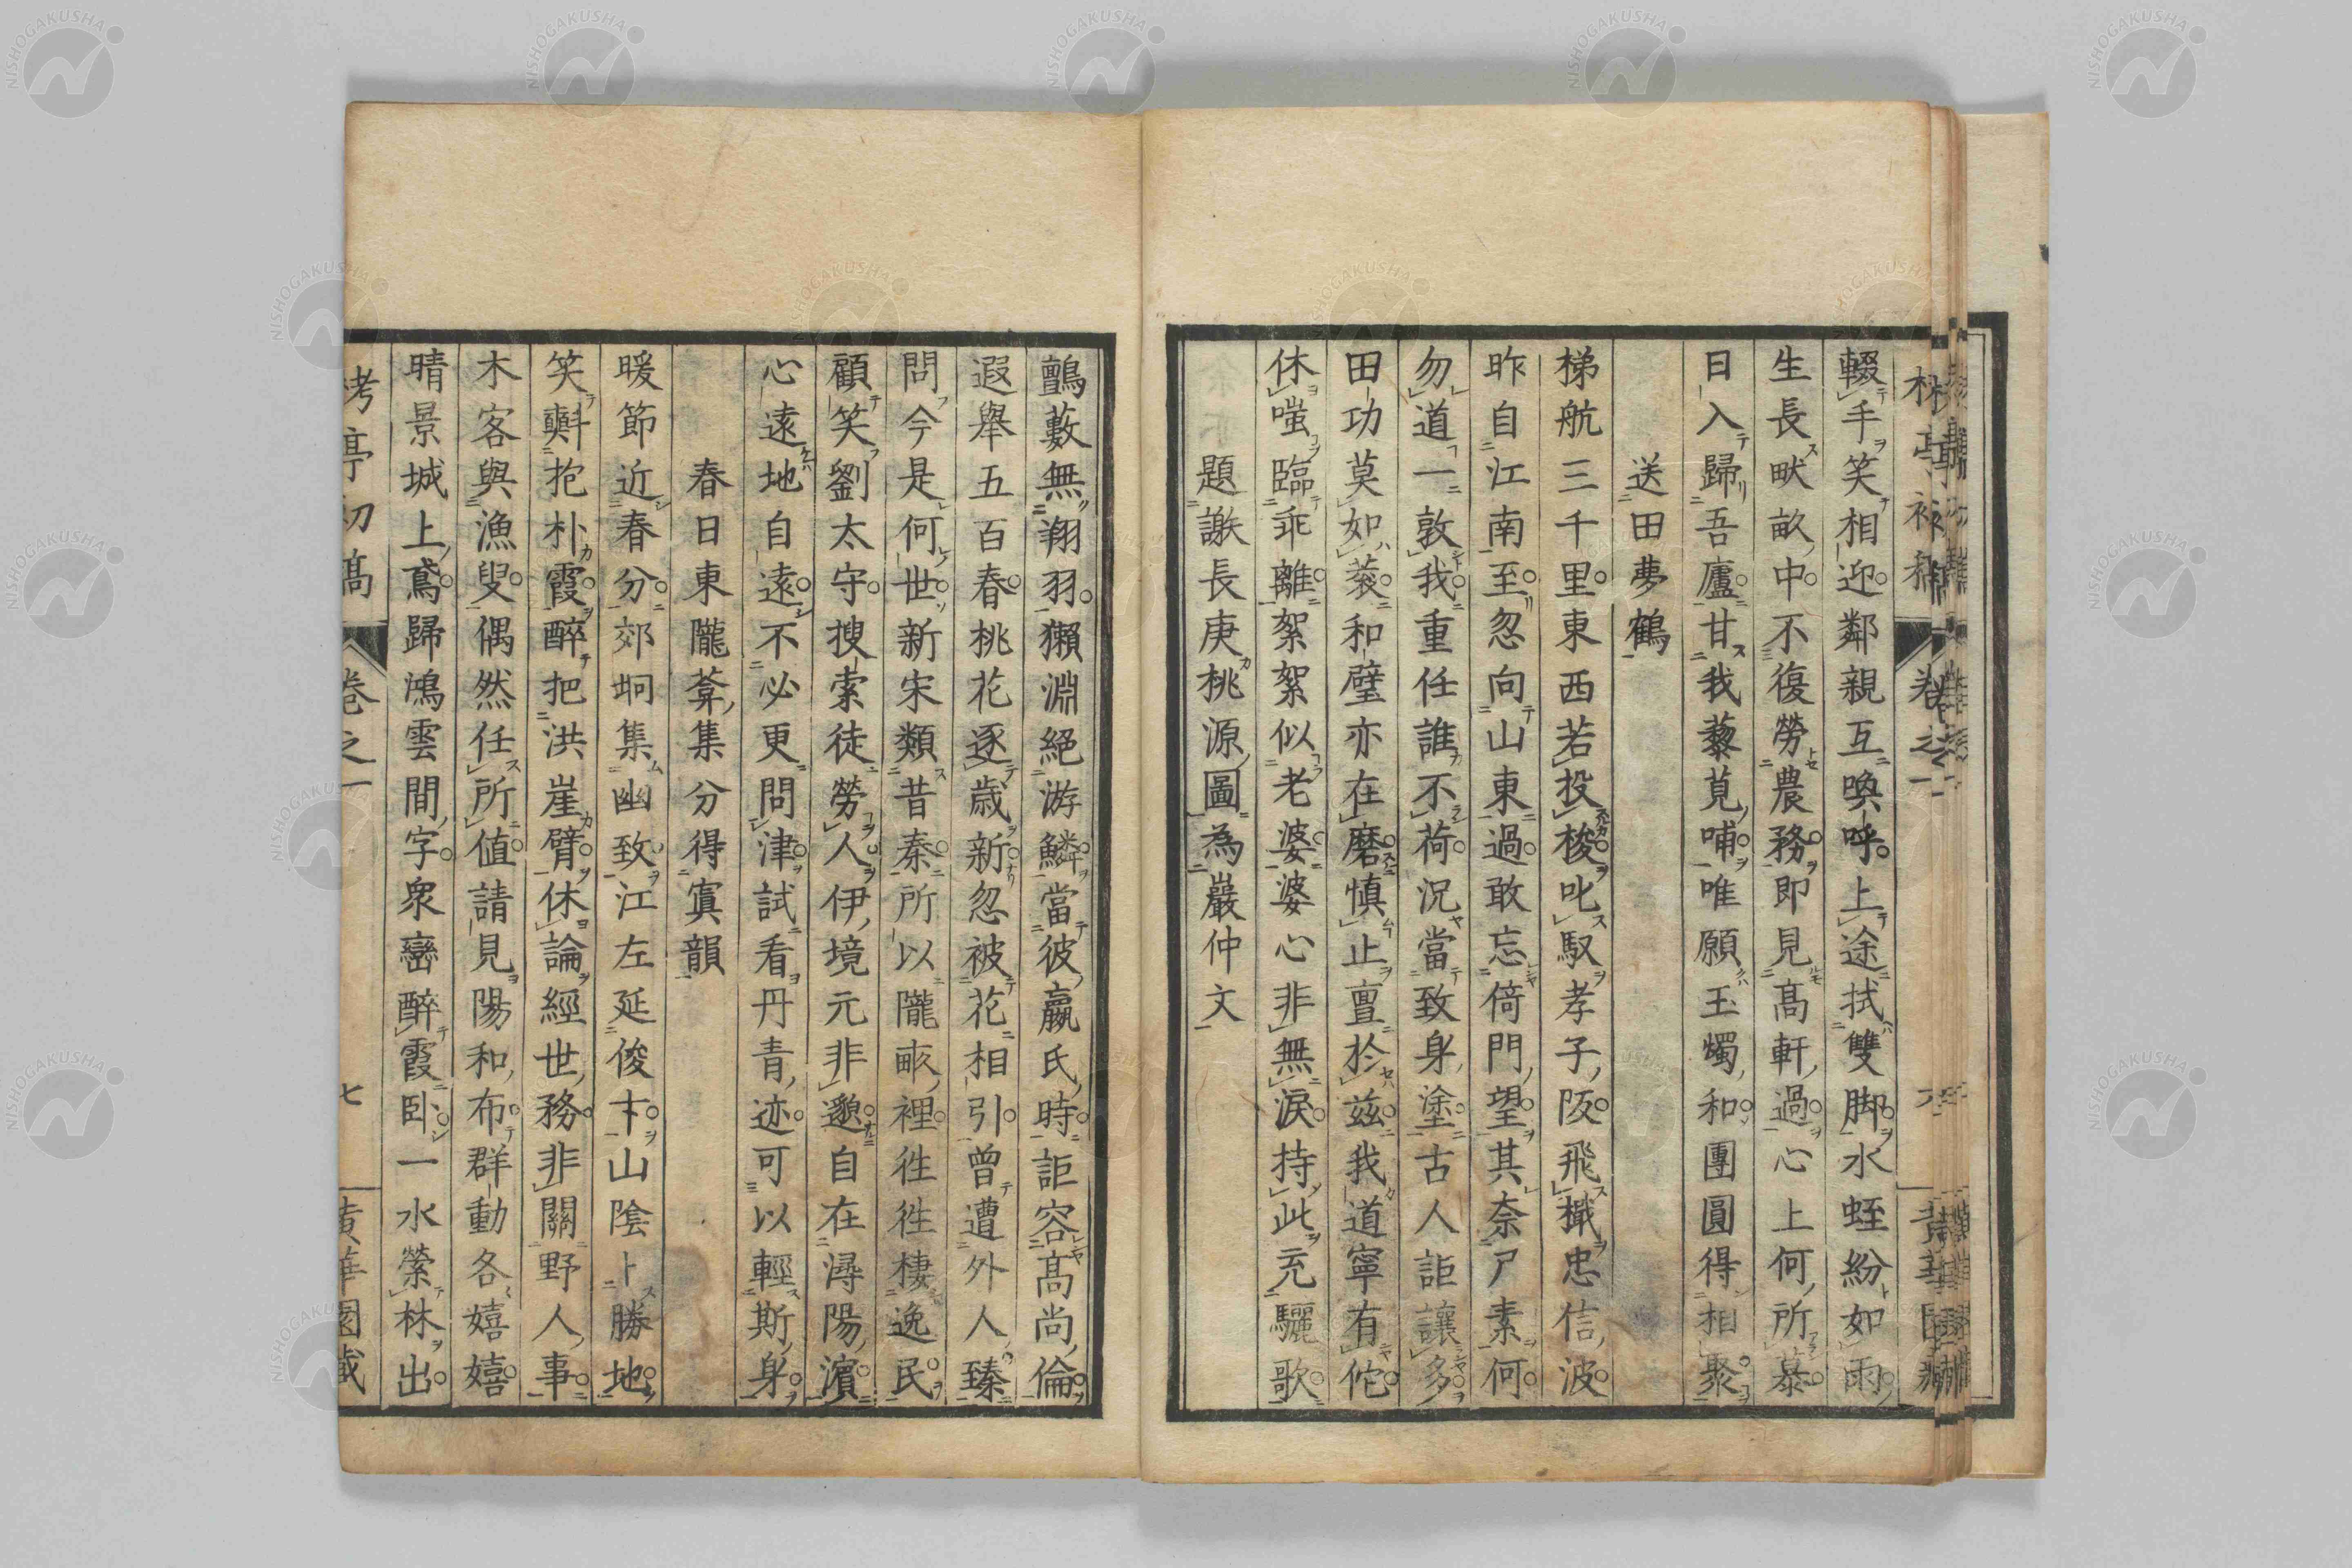 輟手笑相迎鄰親互喚呼上途拭雙脚水蛭紛如雨
生長畎畝中不復勞農務即見髙軒過心上何所慕
日入歸吾廬甘我藜莧哺唯願玉燭和團圓得相聚
送田夢鶴
梯航三千里東西若投梭叱馭孝子阪飛檝忠信波
昨自江南至忽向山東過敢忘倚門望其奈尸素何
勿道一敦我重任誰不荷況當致身塗古人詎讓多
田功莫如蓘和璧亦在磨慎止亶於茲我道寧有佗
休嗤臨乖離絮絮似老婆婆心非無淚持此充驪歌
題謝長庚桃源圖為巖仲文
鸇藪無翔羽獺淵絕游鱗當彼嬴氏時詎容髙尚倫
遐舉五百春桃花逐歲新忽被花相引曾遭外人臻
問今是何世新宋類昔秦所以隴畝裡往往棲逸民
顧笑劉太守搜索徒勞人伊境元非邈自在潯陽濱
心遠地自遠不必更問津試看丹青迹可以輕斯身
春日東隴莽集分得寘韻
暖節近春分郊坰集幽致江左延俊卞山陰卜勝地
笑㪺抱朴霞醉把洪崖臂休論經世務非關野人事
木客與漁叟偶然任所値請見陽和布群動各嬉嬉
晴景城上鳶歸鴻雲間字衆巒醉霞卧一水縈林出
卷之一
七